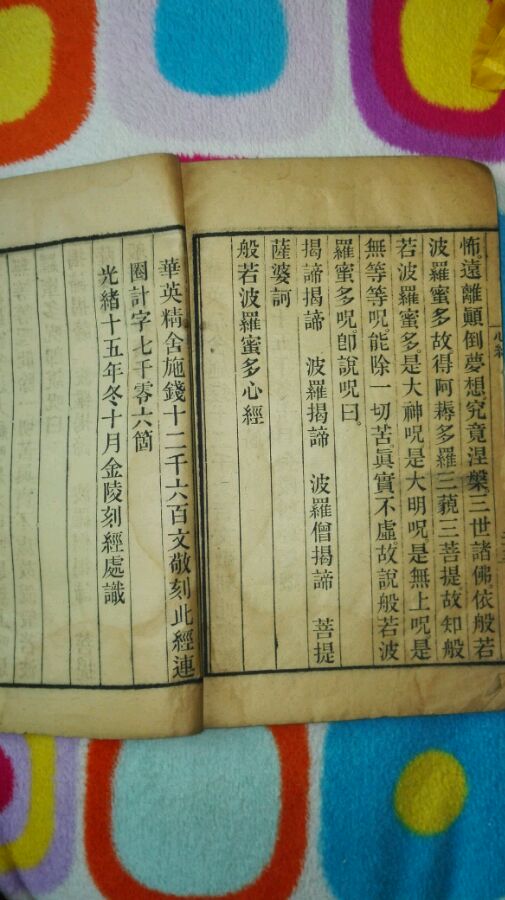 怖。遠離顚倒夢想。究竟涅槃。三世諸佛依般若
波羅蜜多故得阿耨多羅三藐三菩提故知般
若波羅蜜多是大神呪是大明呪是無上呪是
無等等呪。能除一切苦。眞實不虛。故說般若波
羅蜜多呪。卽說呪曰。
揭諦揭諦 波羅揭諦 波羅僧揭諦 菩提
薩婆訶
般若波羅蜜多心經
華英精舍施錢十二千六百文敬刻此經連
圈計字七千零六箇
光緒十五年冬十月金陵刻經處識